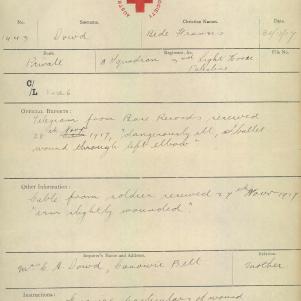 SOCIETY
No. Surname. Christian Names.
1443 Dowd Bede Francis
Rank. Regiment, &c. File No.
Private A Squadron 3rd Light Horse
Palestine
C/
L
OFFICIAL REPORTS:
Telegram from Base Records, received
28th Novr 1917, "dangerously ill, s/bullet
wound through left elbow"
Other Information:
Cable from soldier received 24th Novr 1917
"arm slightly wounded"
Inquirer's Name and Address. Relation.
Mrs E. A. Dowd, Canowie Belt mother
Instructions:
particulars of wound